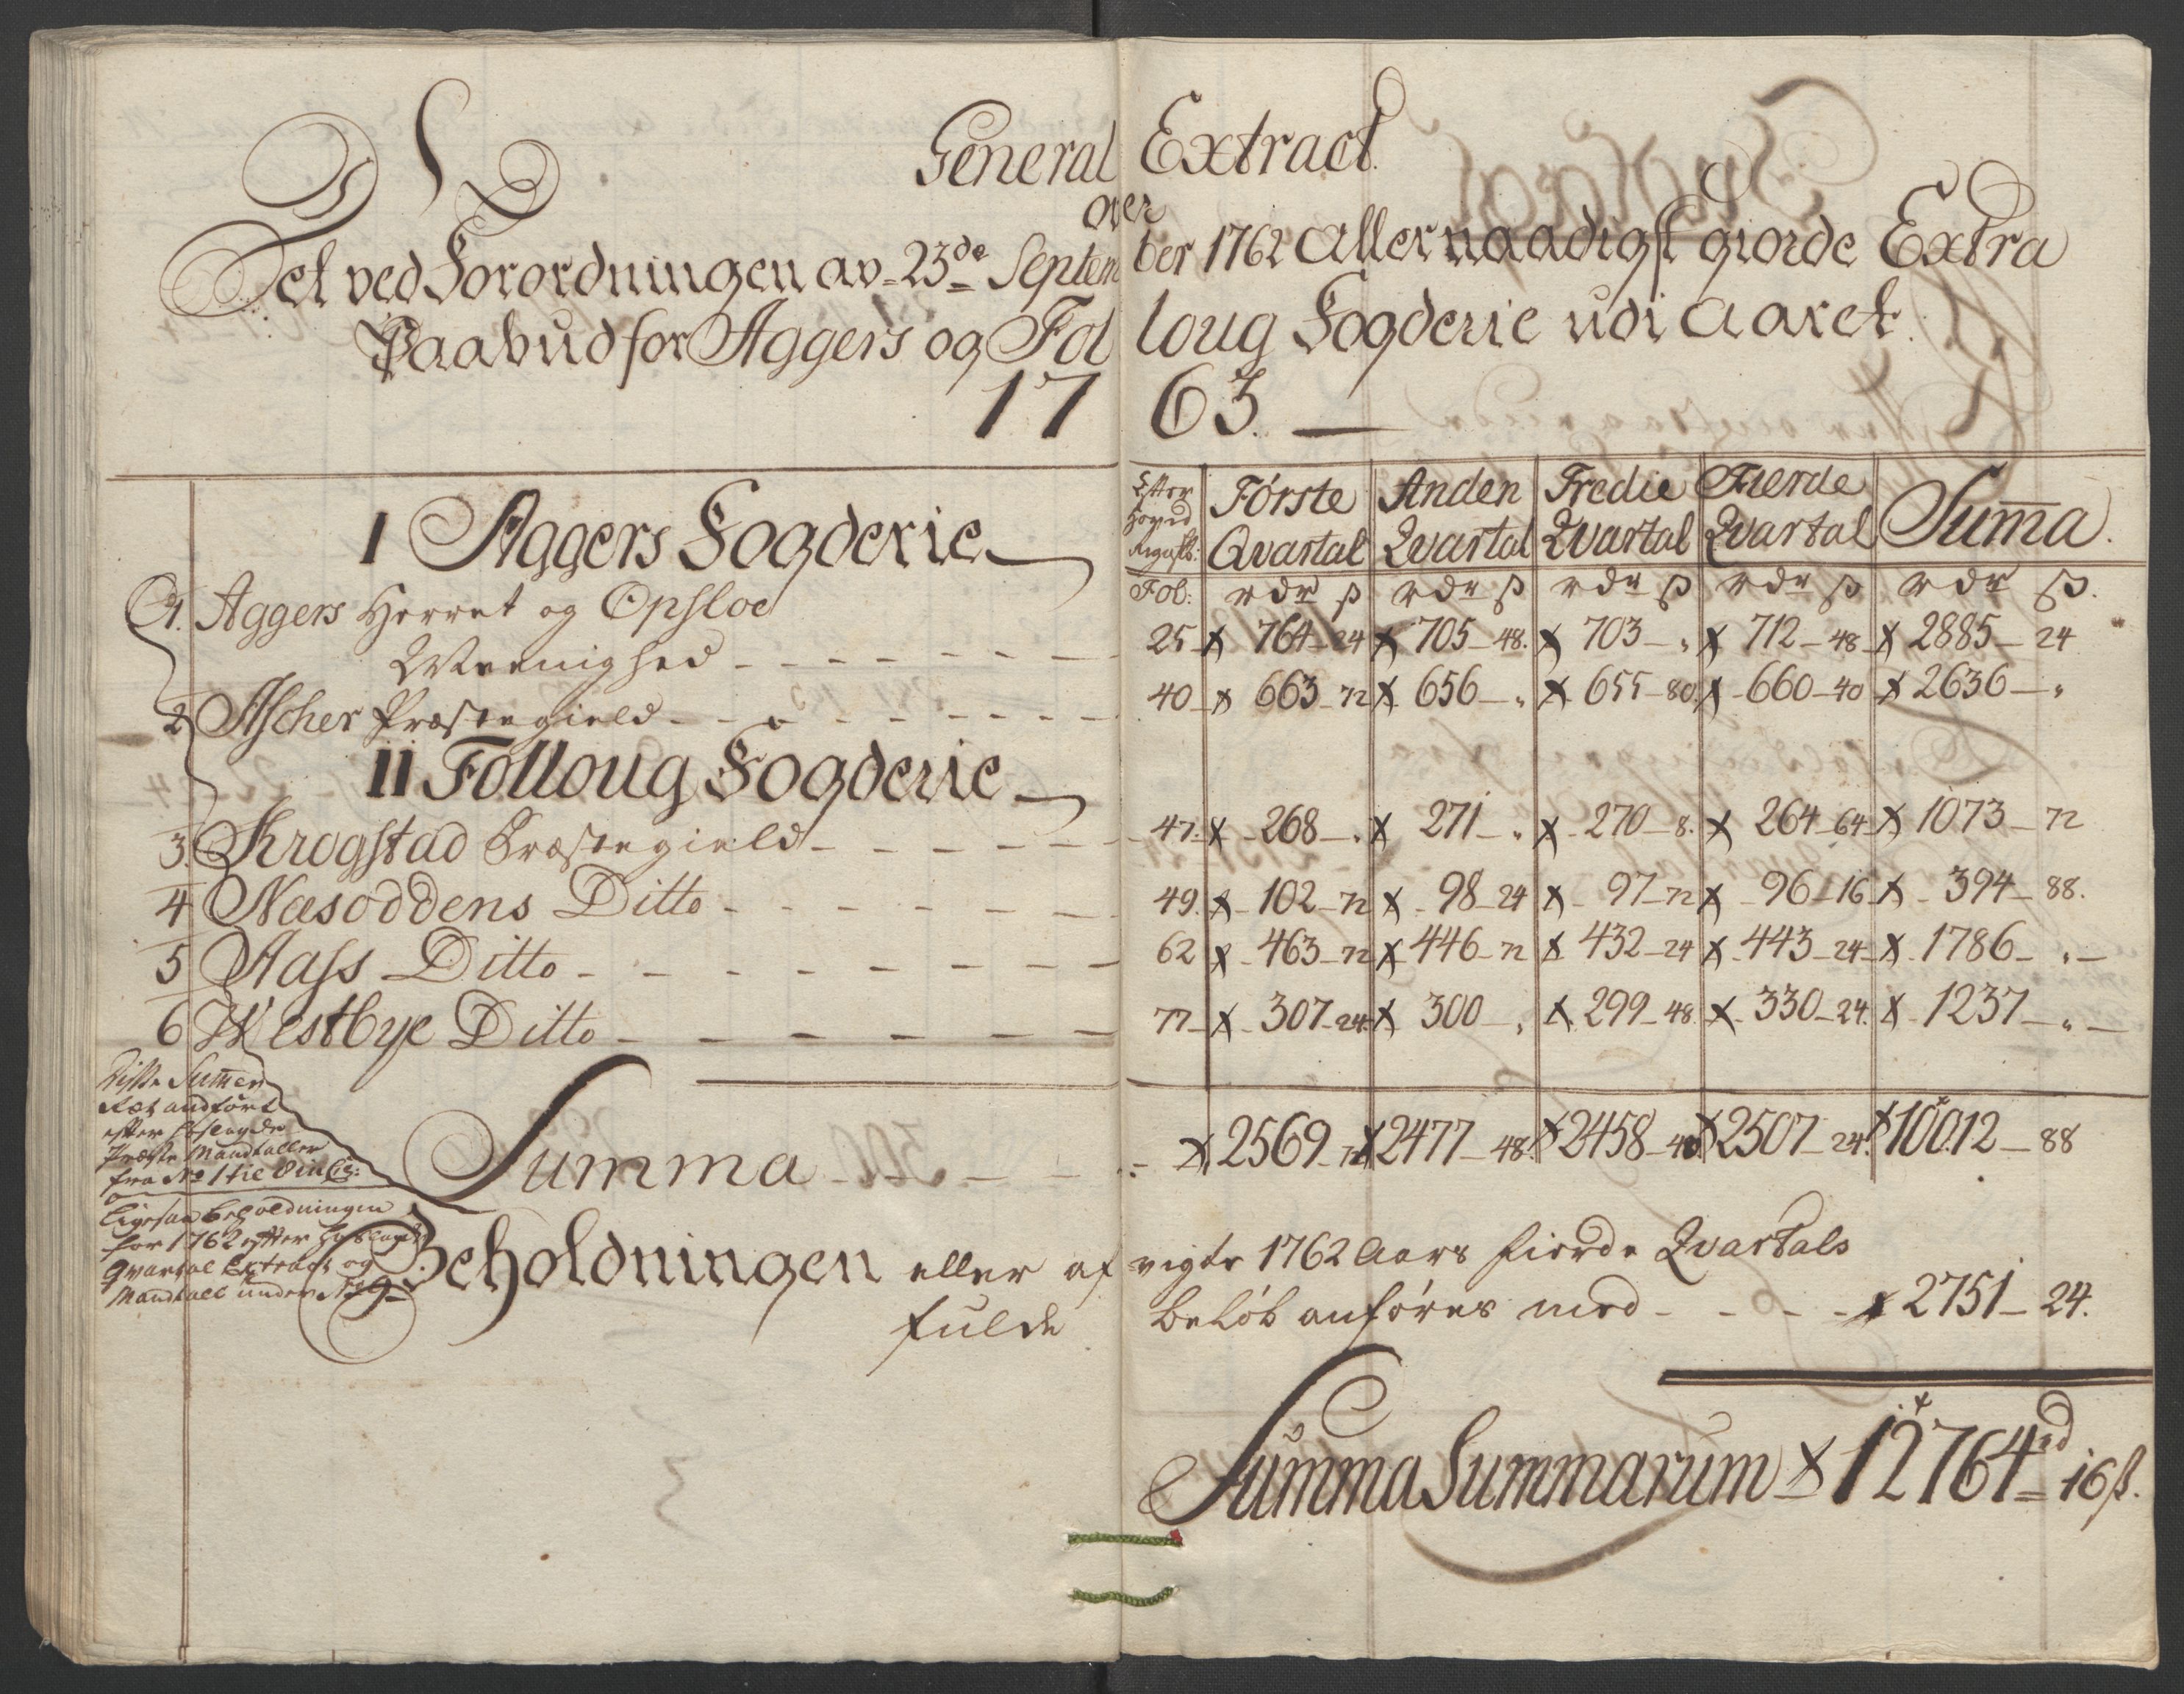 General Extract
over
Det ved Forordningen av 23de September 1762 allernaadigst giorde Extra
Paabud for Aggers og Folloug Fogderie udi Aaret
1763.
Efter Hoved Registr: Første Qvartal Anden Qvartal Tredie Qvartal Fierde Qvartal Summa.
Fol: rdr ß rdr ß rdr ß rdr ß rdr ß.
I Aggers Fogderie
1. Aggers Herret og Opsloe
Wårenighed - - - 25 764 - 24 705 - 48. 703 - „ 712 - 48 2885 - 24
2 Ascher Præstegield - - - 40 663 - 72 656 - „ 655 - 80. 660 - 40 2636 - „
II Folloug Fogderie
3. Krogstad Præstegield - - - 47. 268 - „ 271 - „ 270 - 8. 264 - 64 1073 - 72
4 Næsoddens Ditto - - - 49. 102 - 72 98 - 24 97 - 72 96 - 16 394 - 88.
5 Aass Ditto - - - 62 463 - 72 446 - 72 432 - 24 443 - 24 1786 - „ -
6 Westbye Ditto - - - 77 307 - 24 300 - „ 299 - 48 330 - 24. 1237 - „ -
Summa - - - 2569 - 72 2477 - 48. 2458 - 40 2507 - 24. 10012 - 88
Disse Summer
Ret andført
efter hoslagde
Mandtaller
fra No 1 til 8 incl:
Ligesaa beholdningen
for 1762 efter hoslagde
Qvartal Extract og
Mandtall under No 9
Beholdningen eller afvigte 1762 Aars fierde Qvartals
fulde beløb anføres med - - - 2751 - 24.
Summa Summarum 12764 rd 16 ß.